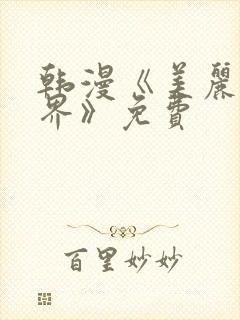 韩漫《美麗
界》免費
百里妙妙